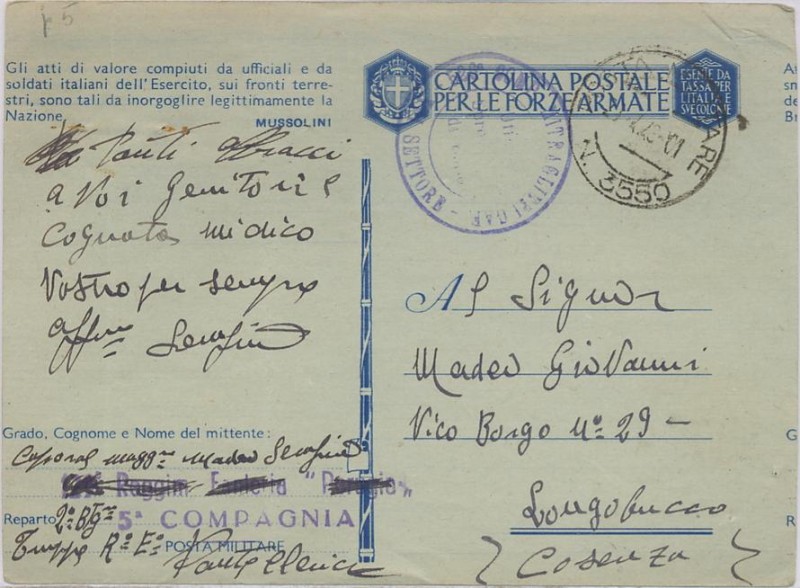 Gli atti di valore compiuti da ufficiali e da
soldati italiani dell'Esercito, sui fronti terre-
stri, sono tali da inorgoglire legittimamente la
Nazione.
MUSSOLINI
Tanti Abbracci
a Voi Genitori e
Cognata
Vostro per sempre
affmo Serafino
Grado, Cognome e Nome del mittente:
Caporal maggre Madeo Serafino
Raggim Fanteria "Perugia"
Reparto 2º Btgne
5ª COMPAGNIA
Truppe Rº Eº
POSTA MILITARE
Pantelleria
CARTOLINA POSTALE
PER LE FORZE ARMATE
ESENTE DA
TASSA PER
L'ITALIA E
SUE COLONIE
SETTORE
N. 3550
Al Signor
Madeo Giovanni
Vico Borgo Nº 29-
Longobucco
(Cosenza)